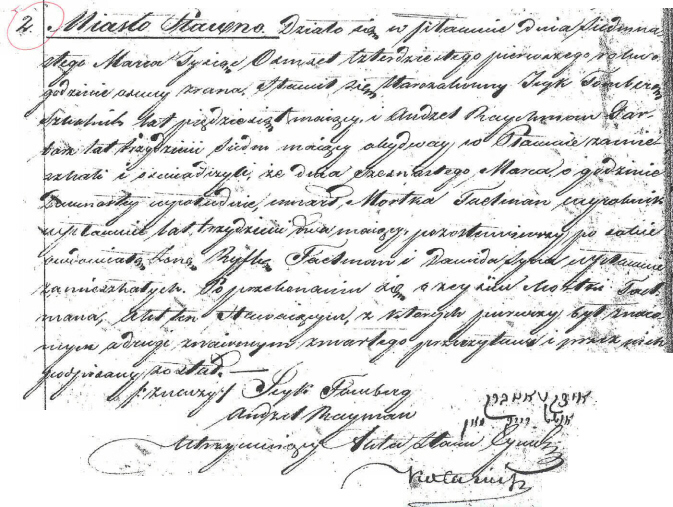 2. Miasto Stawno. Działo się w Stawnie dnia Siedmna-
stego Marca Tysiąc Osmset czterdziestego pierwszego roku o
godzinie osmey zrana. Stawił się Starozakonny Icyk Fomberg
Szkolnik lat pięćdziesiąt maiący, i Andzel Raychman Gar-
barz lat trzydzieści siedm maiący obydway w Stawnie zamie-
szkali i oswiadczyli, że dnia szesnastego Marca, o godzinie
Dwunastey w południe, umarł, Mostka Factman wyrobnik
w Stawnie lat, trzydzieści dwa maiący, pozostawiwszy po sobie
owdowiałą Żonę Ryfkę Factman i Dawida syna w Stawnie
zamieszkałych. Po przekonaniu się o zeyściu Mostki Fact-
mana, Akt ten Stawaiącym, z których pierwszy był znaio-
mym a drugi znaiomym zmarłego przeczytany i przez nich
podpisany został. —
/: znaczy :/ Icyk Fomberg
Andzel Rayman
Utrzymuiący Akta Stanu Cywil: